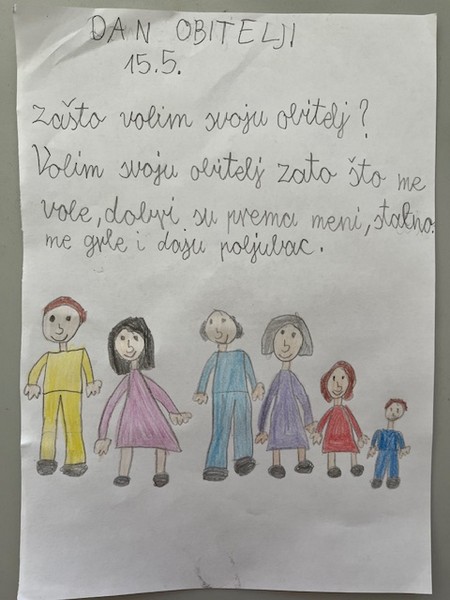 DAN OBITELJI
15.5.
Zašto volim svoju obitelj?
Volim svoju obitelj zato što me
vole, dobri su prema meni, stalno
me grle i daju poljubac.